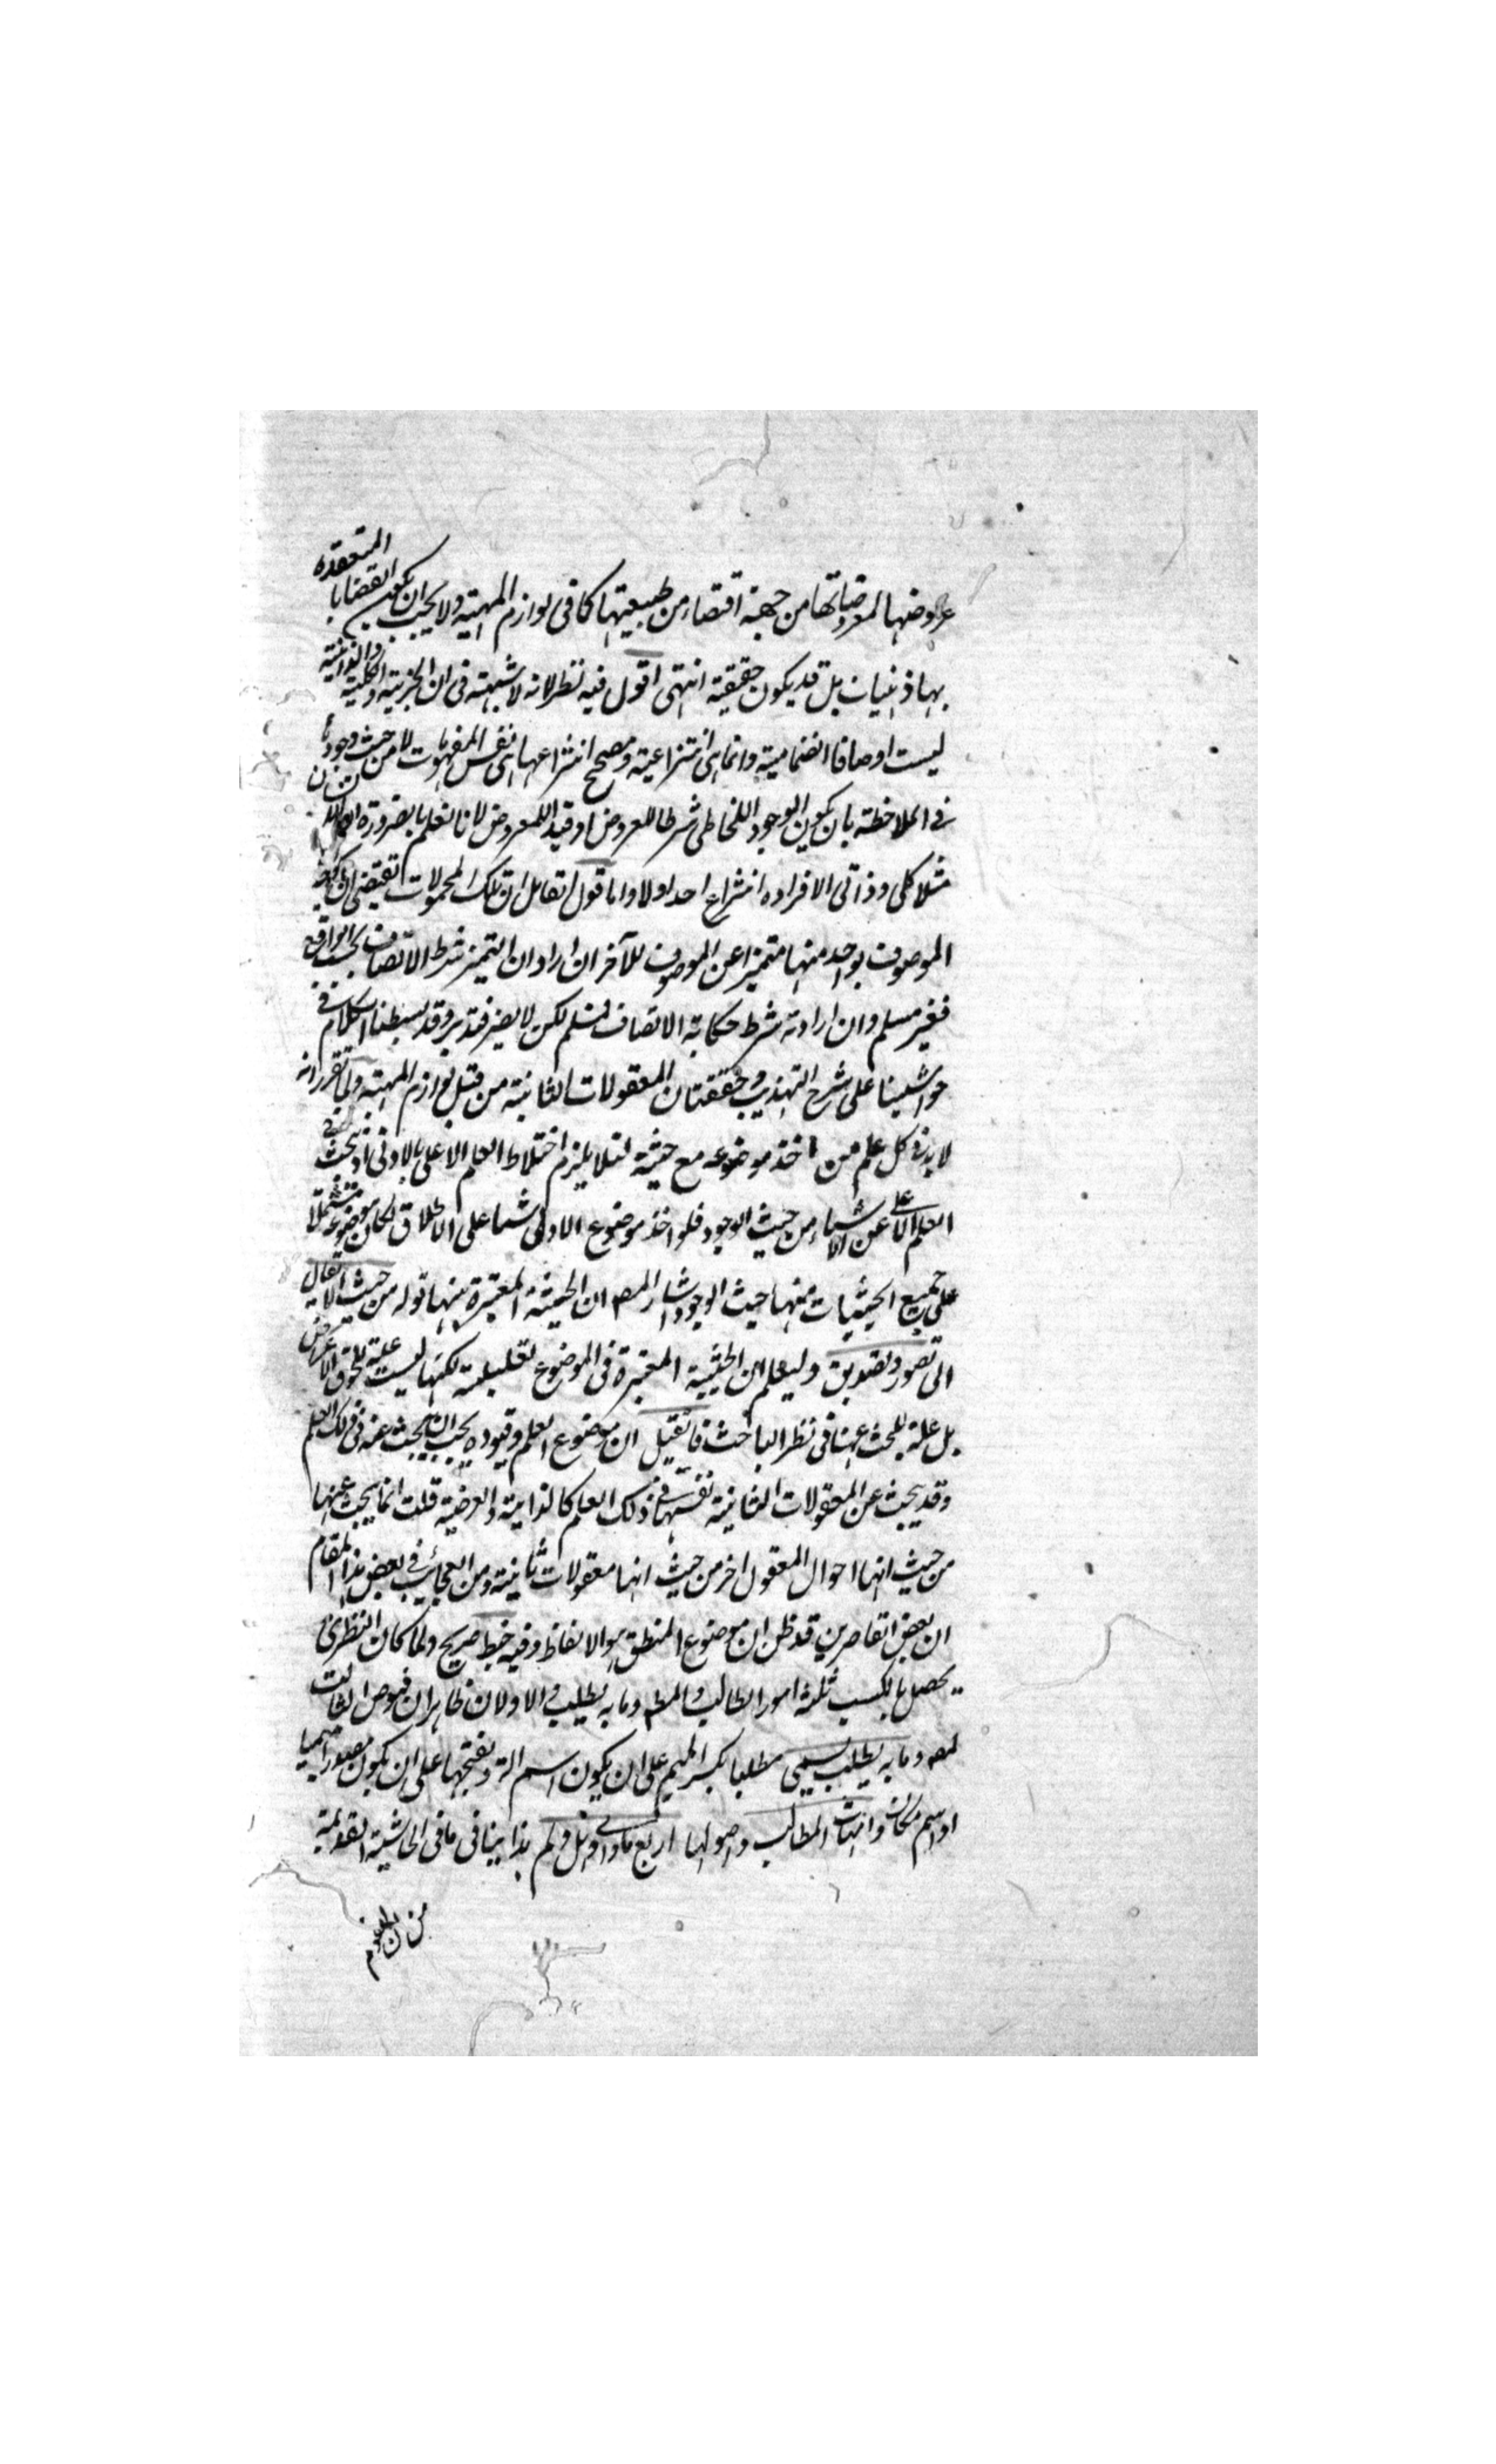 عروضها لمعروضاتها من جهة اقتضاء من طبيعتها كما فى لوازم المهية ولا يجب ان يكون القضايا المنعقدة
بها ذهنيات بل قد يكون حقيقية انتهى اقول فيه نظر لانه لا شبهة فى ان الجزئية والكلية والذاتية
ليست اوصافا انضمامية وانما هى انتزاعية ومصحح انتزاعها هى نفس المفهومات لا من حيث وجودها
فى الملاحظة بان يكون الوجود اللحاظى شرطا للعروض او قيدا للمعروض لانا نعلم بالضرورة ان
مثلا كلى وذاتى لافراده انتزاع احد اولا واما قول القائل ان تلك المحمولات تقتضى ان
الموصوف بواحد منها متميزا عن الموصوف للآخر ان اراد ان التميز شرط الاتصاف بحسب الواقع
فغير مسلم وان اراد انه شرط حكاية الاتصاف فمسلم لكن لا يضر فتدبر وقد بسطنا الكلام فى
حواشينا على شرح التهذيب وحققنا ان المعقولات الثانية من قبيل لوازم المهية ولما تقرر انه
لا بد فى كل علم من اخذ موضوعه مع حيثية لئلا يلزم اختلاط العلم الاعلى بالادنى اذ يبحث فى
العلم الاعلى عن الاشياء من حيث الوجود فلو اخذ موضوع الادنى شيئا على الاطلاق لكان موضوعه مشتملا
على جميع الحيثيات منها حيث الوجود اشار المص ان الحيثية المعتبرة منها قوله من حيث الايصال
الى تصور وتصديق وليعلم ان الحيثية المعتبرة فى الموضوع تعليلية لكنها ليست علية للحوق الاعراض
بل علة للبحث عنها فى نظر الباحث فما قيل ان موضوع العلم وقيوده يجب ان لا يبحث عنه فى ذلك العلم
وقد يبحث عن المعقولات الثانية نفسها فى ذلك العلم كالذاتية والعرضية قلت انما يبحث عنها
من حيث انها احوال المعقول اخر من حيث انها معقولات ثانية ومن العجائب فى بعض هذا المقام
ان بعض القاصرين قد ظن ان موضوع المنطق هو الالفاظ وفيه خبط صريح ولما كان النظرى
يحصل بالكسب ثلثة امور الطالب والمط وما به يطلب والاولان ظاهران فيوص الثالث
لمص وما به يطلب يسمى مطلبا بكسر الميم على ان يكون اسم الة وبفتحها على ان يكون مصدرا ميميا
او اسم مكان وامهات المطالب واصولها اربع ما واى وهل ولم هذا ينافى ما فى الحاشية القديمة
من ان